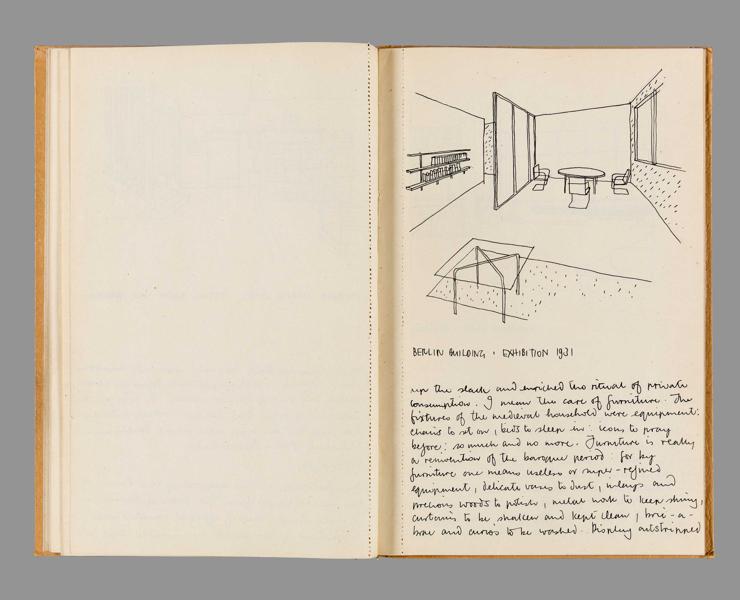 BERLIN BUILDING · EXHIBITION 1931
up the slack and enriched the ritual of private
consumption. I mean the care of furniture. The
fixtures of the medieval household were equipment:
chairs to sit on, beds to sleep in: icons to pray
before: so much and no more. Furniture is really
a reinvention of the baroque period: for by
furniture one means useless or super-refined
equipment, delicate vases to dust, inlays and
precious woods to polish, metal work to keep shiny,
curtains to be shaken and kept clean, bric-a-
brac and curios to be washed. Display outstripped